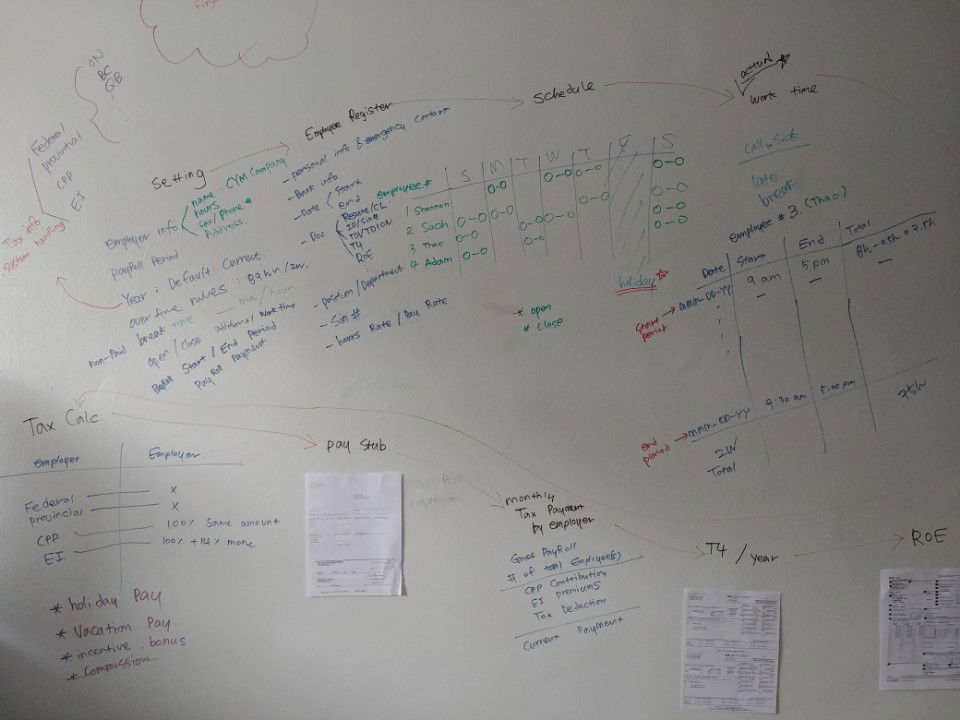 ON
BC
QB
Federal
provincial
CPP
EI
Tax info
handling
system
Setting
employer info
name
hours
Address
CYM Company
Payroll Period
Year : Default : Current
over time rules : 89hr/2w.
non-Paid break time
open / close
additional Work time
Payroll Start / End Period
Pay Roll Payment
Employee Register
- personal info & emergency contact
- Bank info
- Date
Start
End
- Doc
Resume/CL
ID/Sin#
TD1/TD1ON
T4
ROE
- position/Department
- Sin #
- hours Rate / Pay Rate
Schedule
employee #
S M T W T F S
1 Shannon
2 Sach
3 Thao
4 Adam
holiday
* open
* close
actual
Work time
call in sick
late
break
employee # 3 (Thao)
Date Start End Total
start period
mmm-DD-YY 9 am 5 pm 8h - 0.5h = 7.5h
end period
mmm-DD-YY 9:30 am 5:00 pm 75h
2W
Total
Tax Calc
employee Employer
Federal x
provincial x
CPP 100% Same amount
EI 100% + 14% more
* holiday Pay
* Vacation Pay
* incentive, bonus
* Commission
pay stub
monthly
Tax Payment
by employer
Gross PayRoll
# of total Employee(s)
CPP Contribution
EI premiums
Tax Deduction
Current Payment
T4 / year
ROE